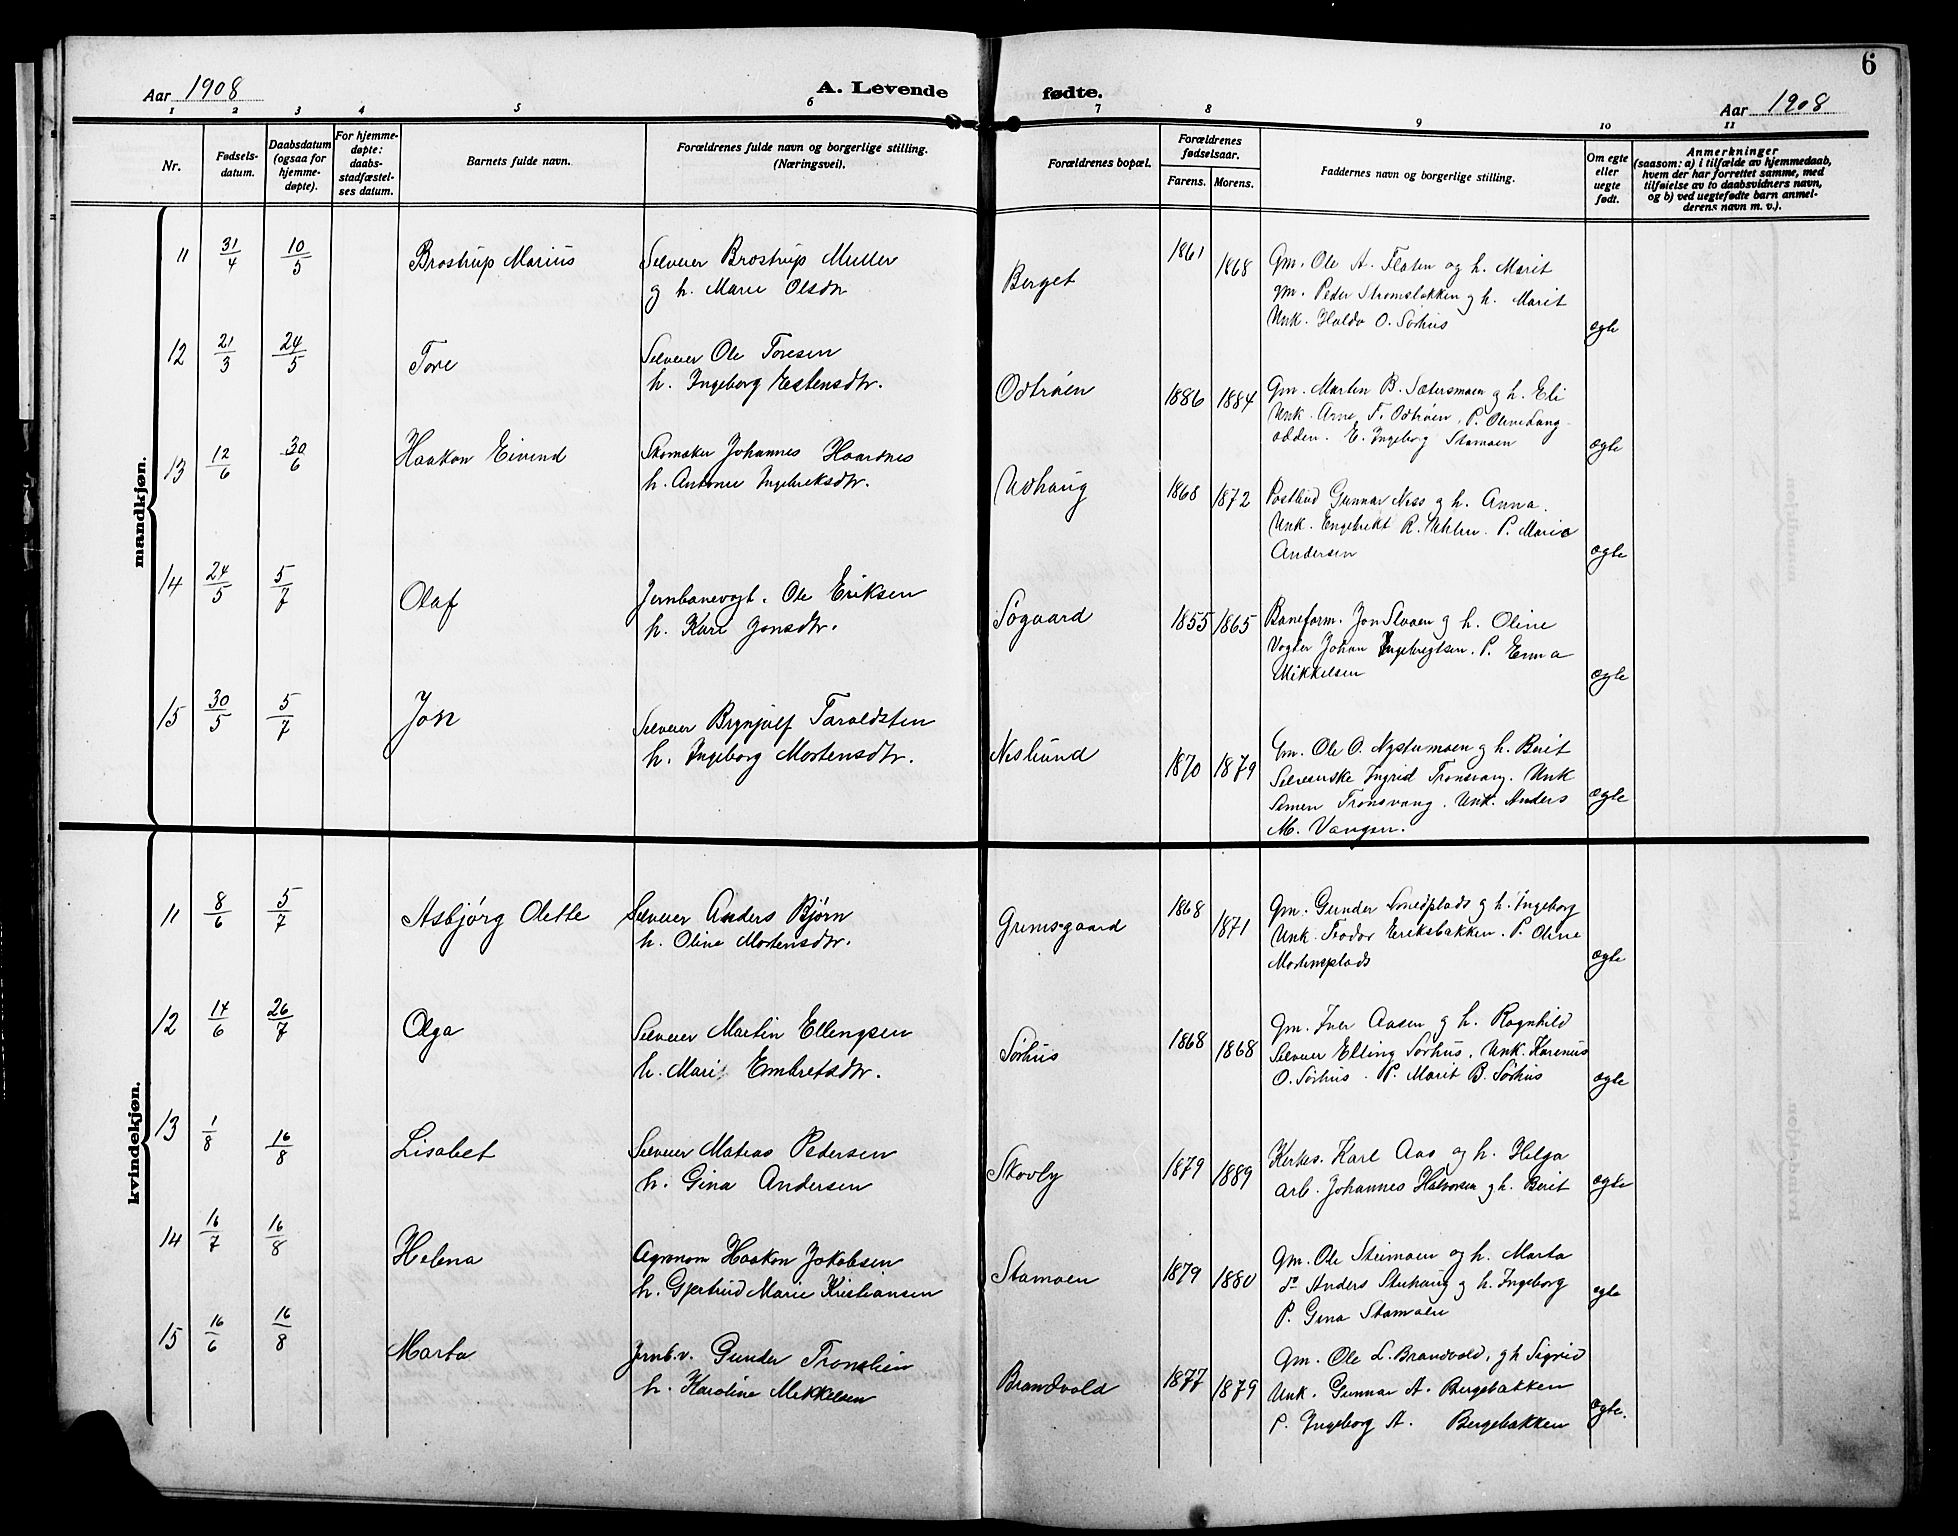 6
Aar 1908
A. Levende fødte.
Aar 1908
1 2 3 4 5 6 7 8 9 10 11
Nr.
Fødsels-
datum.
Daabsdatum
(ogsaa for
hjemme-
døpte).
For hjemme-
døpte:
daabs-
stadfæstel-
ses datum.
Barnets fulde navn.
Forældrenes fulde navn og borgerlige stilling.
(Næringsvei).
Forældrenes bopæl.
Forældrenes
fødselsaar.
Farens. Morens.
Faddernes navn og borgerlige stilling.
Om egte
eller
uegte
født.
Anmerkninger
(saasom: a) i tilfælde av hjemmedaab,
hvem der har forrettet samme, med
tilføielse av to daabsvidners navn,
og b) ved uegtefødte barn anmel-
derens navn m. v.).
mandkjøn.
11 31/4 10/5 Brostrup Marius
Selveier Brostrup Muller
g h. Marie Olsdtr
Berget 1861 1868
Gm. Ole A. Floten og h. Marit
gm. Peder Strømsløkken g h. Marit
Unk. Haldo O. Sørhus
egte
12 21/3 24/5 Tore
Selveier Ole Toresen
h. Ingeborg Estensdtr.
Odtrøen 1886 1884
Gm. Marten B. Sætersmoen g h. Eli
Unk. Arne T. Odtrøen, P. Oline Lang-
odden. E. Ingeborg Stamoen
egte
13 12/6 30/6 Haakon Eivend
Skomaker Johannes Haarsnes
h. Antonie Ingebriksdtr.
Udhaug 1868 1872
Postbud Gunnar Ness g h. Anna.
Unk. Engebrikt R. Uhlen. P. Marie
Andersen
egte
14 24/5 5/7 Olaf
Jernbanevogt. Ole Eriksen
h. Kari Jonsdtr.
Søgaard 1855 1865
Baneform. Jon Steaen g h. Oline
Vogter Johan Ingebregtsen. P. Emma
Mikkelsen
egte
15 30/5 5/7 Jon
Selveier Brynjulf Taraldsten
h. Ingeborg Mortensdtr.
Neslund 1870 1879
Gm. Ole O. Nystumoen g h. Berit
Selveierske Ingrid Tronsvang. Unk
Simen Tronsvang. Unk. Anders
M. Vangen.
egte
kvindekjøn.
11 8/6 5/7 Asbjørg Olette
Selveier Anders Bjørn
h. Oline Mortensdtr.
Grimsgaard 1868 1871
Gm. Gunder Smedplads g h. Ingeborg
Unk. Trodor Eriksbakken. P. Oline
Mortensplads
egte
12 14/6 26/7 Olga
Selveier Martin Ellengsen
h. Mari Embretsdtr.
Sørhus 1868 1868
Gm. Iver Aasen g h. Ragnhild
Selveier Elling Sørhus. Unk. Karenus
O. Sørhus. P. Marit B. Sørhus
egte
13 1/8 16/8 Lisabet
Selveier Matias Pedersen
h. Gina Andersen
Skovly 1879 1889
Kirkes. Karl Aas og h. Helga
Arb. Johannes Halvorsen g h. Berit
egte
14 16/7 16/8 Helena
Agronom Haakon Jakobsen
h. Gjertrud Marie Kristiansen
Stamoen 1879 1880
Gm. Ole Steimoen og h. Marta
do Anders Stuhaug g h. Ingeborg
P. Gina Stamoen
egte
15 16/6 16/8 Marta
Jernb.v. Gunder Tronslien
h. Karoline Mikkelsen
Brandvold 1877 1879
Gm. Ole L. Brandvold, g h Sigrid
Unk. Gunnar A. Bergebakken
P. Ingeborg A. Bergebakken
egte.